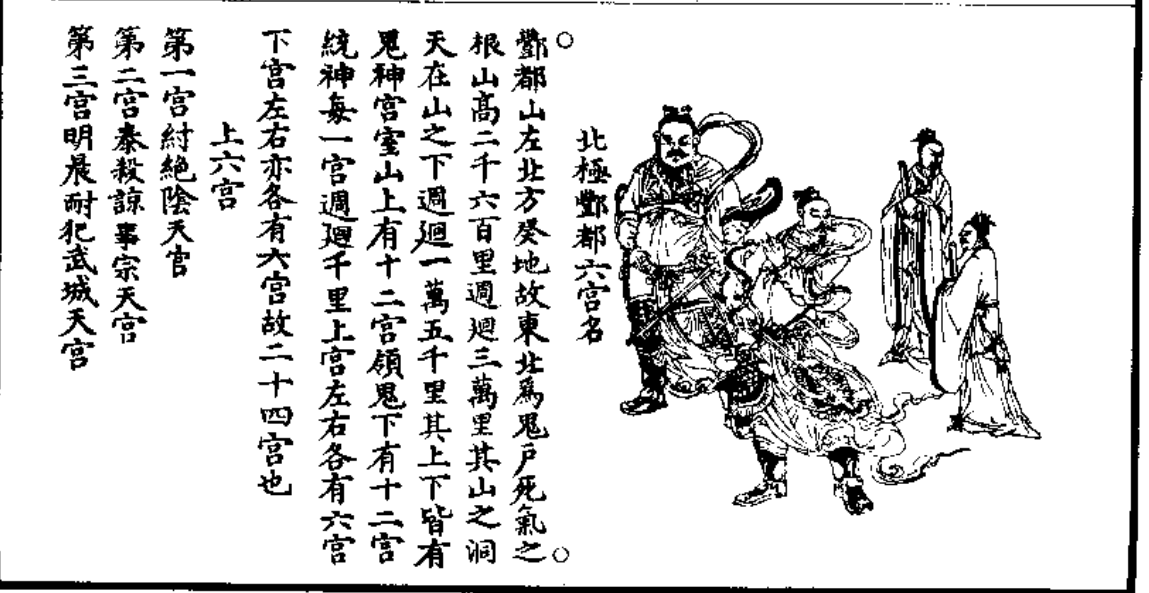 北極酆都六宮名
酆都山左北方癸地故東北爲鬼戶死氣之
根山高二千六百里週迴三萬里其山之洞
天在山之下週迴一萬五千里其上下皆有
鬼神宮室山上有十二宮領鬼下有十二宮
統神每一宮週迴千里上宮左右各有六宮
下宮左右亦各有六宮故二十四宮也
上六宮
第一宮紂絕陰天宮
第二宮泰殺諒事宗天宮
第三宮明晨耐犯武城天宮